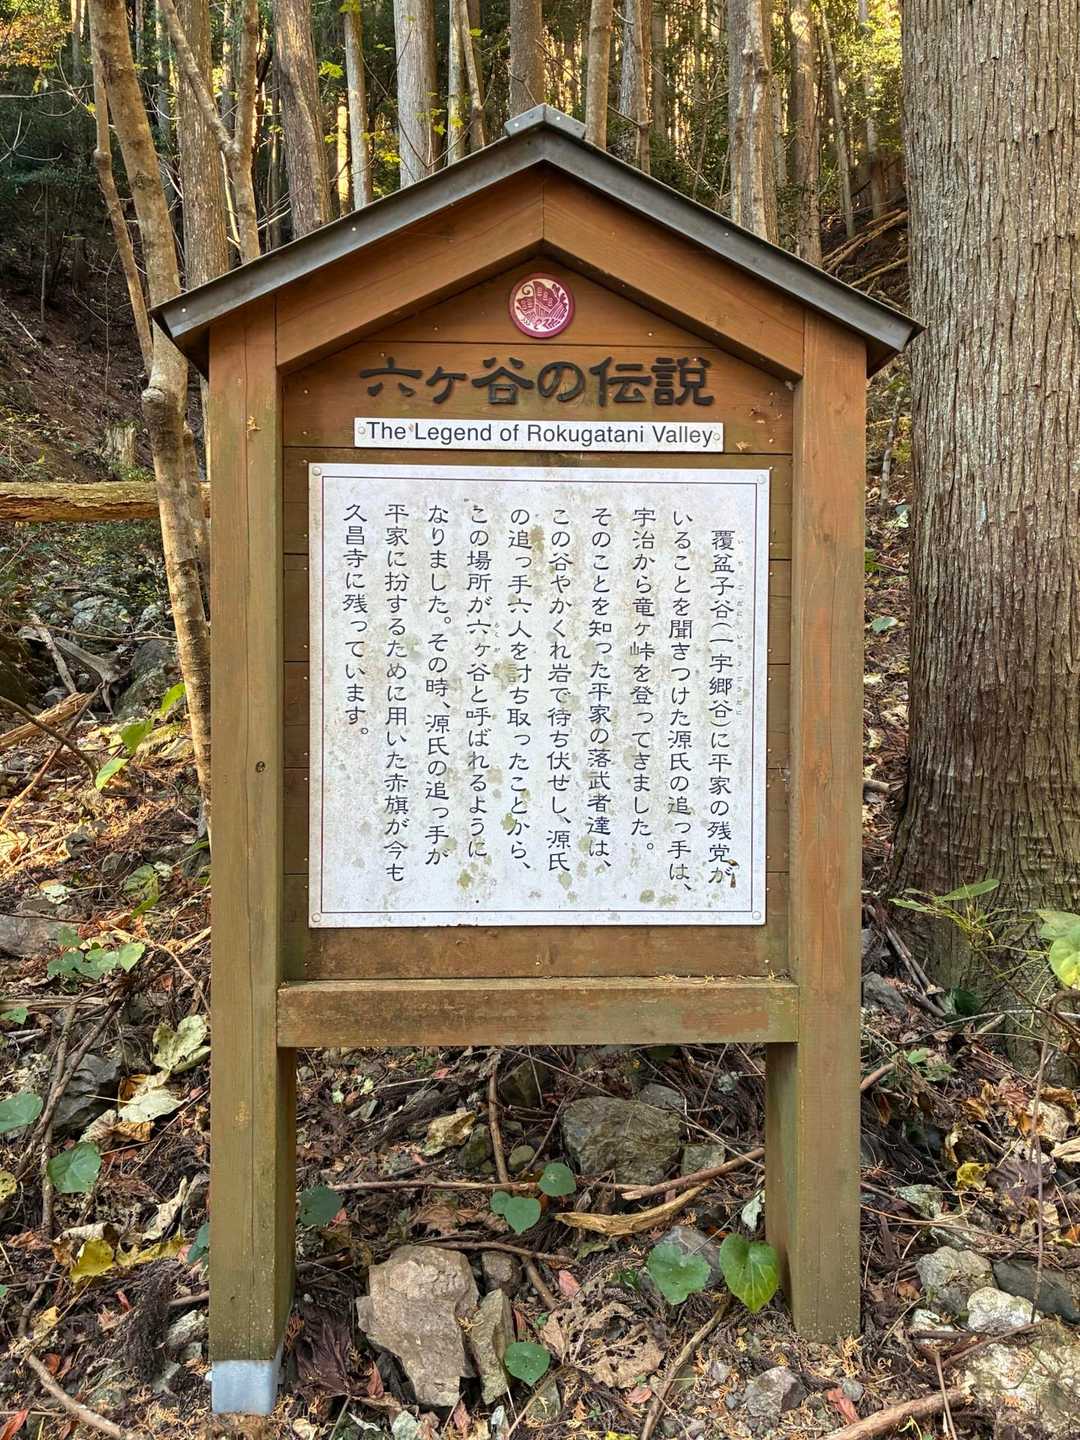 六ヶ谷の伝説
The Legend of Rokugatani Valley
覆盆子谷(一宇郷谷)に平家の残党が
いることを聞きつけた源氏の追っ手は、
宇治から竜ヶ峠を登ってきました。
そのことを知った平家の落武者達は、
この谷やかくれ岩で待ち伏せし、源氏
の追っ手六人を討ち取ったことから、
この場所が六ヶ谷と呼ばれるように
なりました。その時、源氏の追っ手が
平家に扮するために用いた赤旗が今も
久昌寺に残っています。